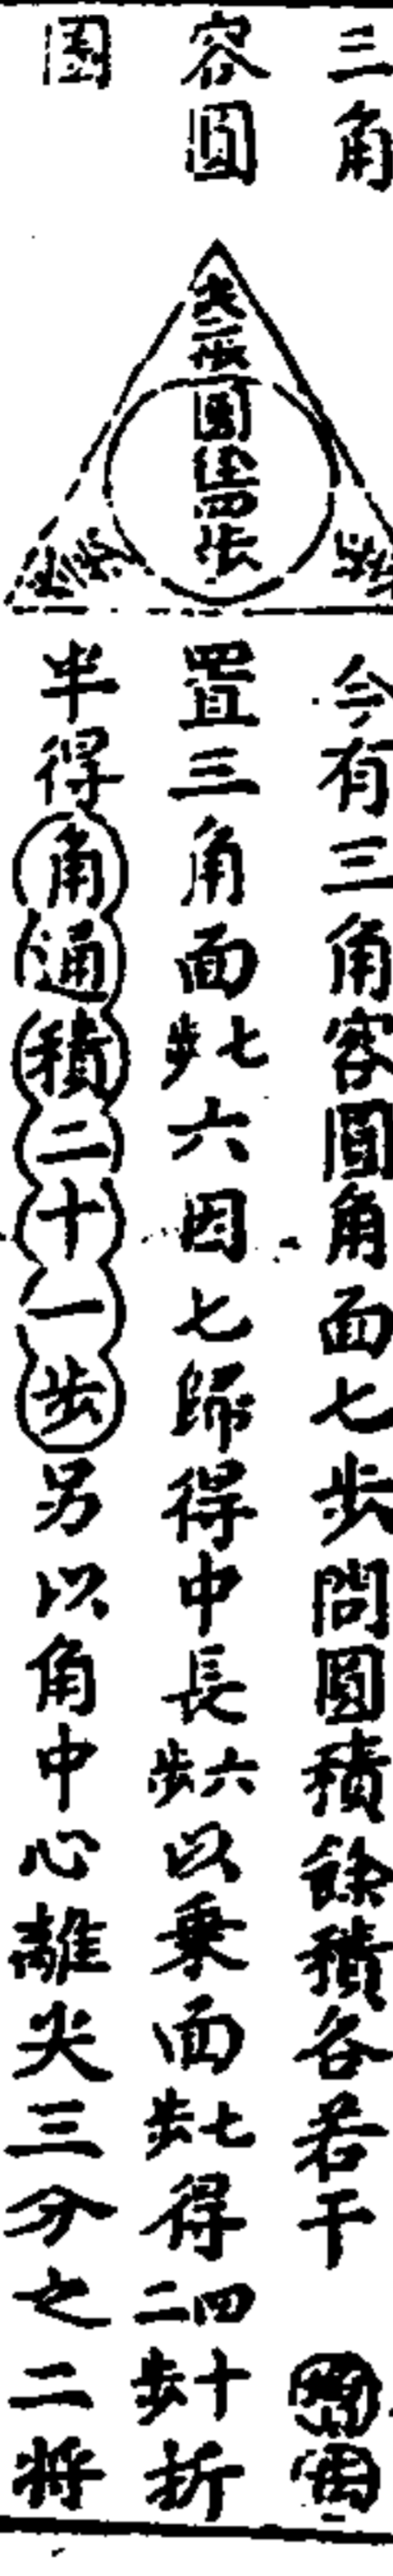 三角
容圓
圖
尖二步圓徑四步
今有三角容圓角面七步問圓積餘積各若干
置三角面七步六因七歸得中長六步以乘面七步得四十二步折
半得角通積二十一步另以角中心離尖三分之二將